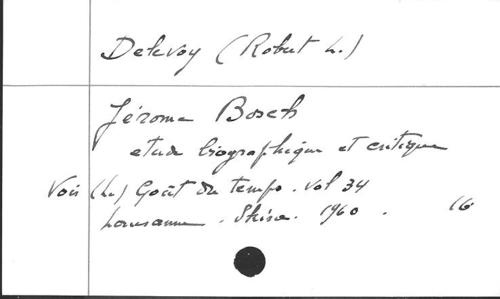 Delevoy (Robert L.)
Jérome Bosch
etude biographique et critique
Voir (Le) Goût du temps. Vol 34
Lausanne. Skira. 1960. 16